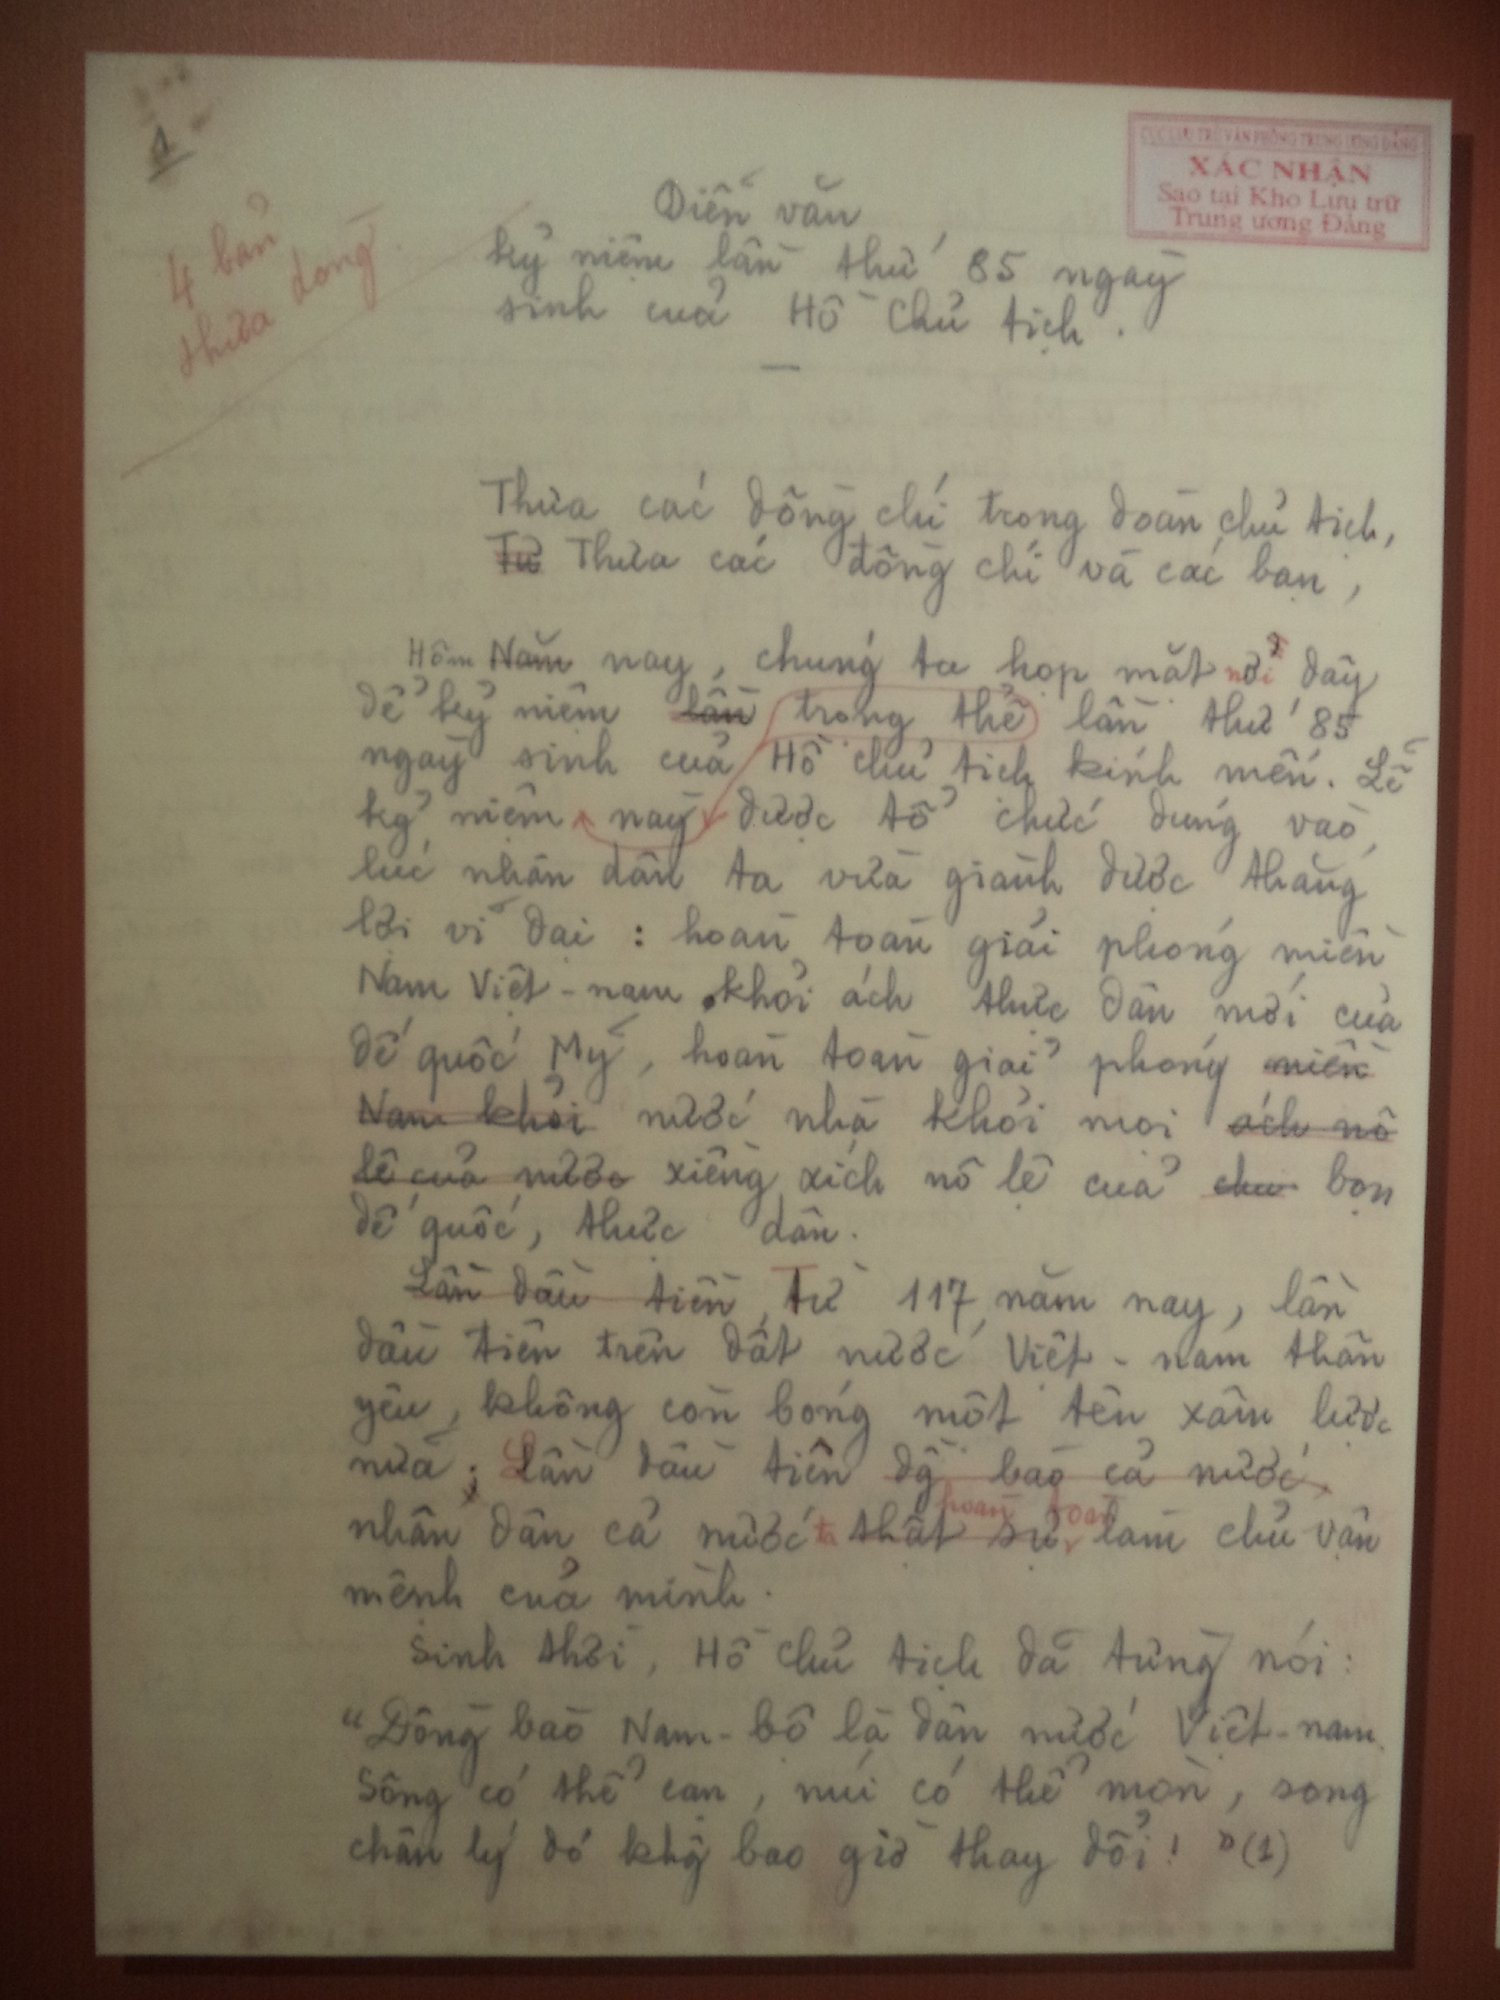 1
4 bản
thưa dong
CỤC LƯU TRỮ VĂN PHÒNG TRUNG ƯƠNG ĐẢNG
XÁC NHẬN
Sao tại Kho Lưu trữ
Trung ương Đảng
Diễn văn
kỷ niệm lần thứ 85 ngày
sinh của Hồ Chủ tịch.
Thưa các đồng chí trong đoàn chủ tịch,
Từ Thưa các đồng chí và các bạn,
Hôm Năm nay, chúng ta họp mặt nơi đây
để kỷ niệm lần trọng thể lần thứ 85
ngày sinh của Hồ chủ tịch kính mến. Lễ
kỷ niệm này được tổ chức đúng vào
lúc nhân dân ta vừa giành được thắng
lợi vĩ đại : hoàn toàn giải phóng miền
Nam Việt-nam khỏi ách thực dân mới của
đế quốc Mỹ, hoàn toàn giải phóng miền
Nam khỏi nước nhà khỏi mọi ách nô
lệ của nước xiềng xích nô lệ của chu bọn
đế quốc, thực dân.
Lần đầu tiên, từ 117 năm nay, lần
đầu tiên trên đất nước Việt-nam thân
yêu, không còn bóng một tên xâm lược
nữa; Lần đầu tiên đg̀ bào cả nước
hoàn toàn
nhân dân cả nước ta thật sự làm chủ vận
mệnh của mình.
Sinh thời, Hồ Chủ tịch đã từng nói:
"Đồng bào Nam-bộ là dân nước Việt-nam.
Sông có thể cạn, núi có thể mòn, song
chân lý đó khg bao giờ thay đổi!" (1)